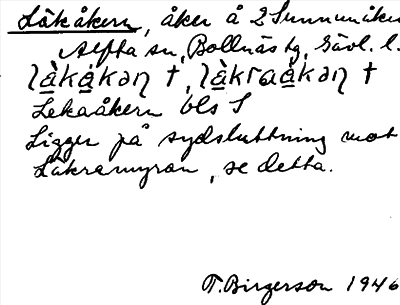 Läkåkern, åker å 2 Sunnanåker
Alfta sn, Bollnäs tg, Gävl. l.
làkåkəη †, làkraåkəη †
Lekaåkern bls 5
Ligger på sydsluttning mot
Läkramyran, se detta.
T. Birgerson 1946